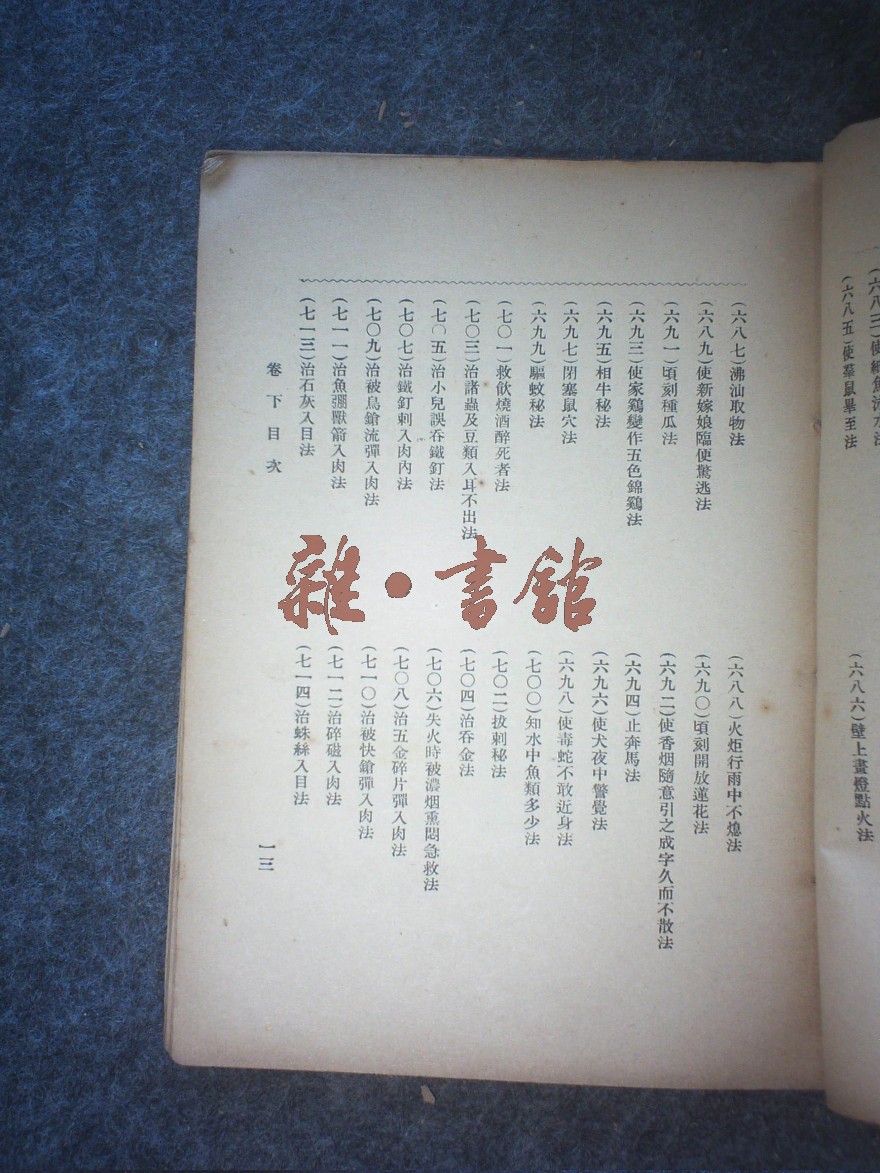 (六八五)使羣鼠畢至法
(六八六)壁上畫燈點火法
(六八七)沸汕取物法
(六八八)火炬行雨中不熄法
(六八九)使新嫁娘臨便驚逃法
(六九〇)頃刻開放蓮花法
(六九一)頃刻種瓜法
(六九二)使香烟隨意引之成字久而不散法
(六九三)使家鷄變作五色錦鷄法
(六九四)止奔馬法
(六九五)相牛秘法
(六九六)使犬夜中警覺法
(六九七)閉塞鼠穴法
(六九八)使毒蛇不敢近身法
(六九九)驅蚊秘法
(七〇〇)知水中魚類多少法
(七〇一)救飮燒酒醉死者法
(七〇二)拔刺秘法
(七〇三)治諸蟲及豆類入耳不出法
(七〇四)治吞金法
(七〇五)治小兒誤吞鐵釘法
(七〇六)失火時被濃烟熏悶急救法
(七〇七)治鐵釘刺入肉內法
(七〇八)治五金碎片彈入肉法
(七〇九)治被鳥鎗流彈入肉法
(七一〇)治被快鎗彈入肉法
(七一一)治魚弸獸箭入肉法
(七一二)治碎磁入肉法
(七一三)治石灰入目法
(七一四)治蛛絲入目法
卷下目次
一三
雜·書館